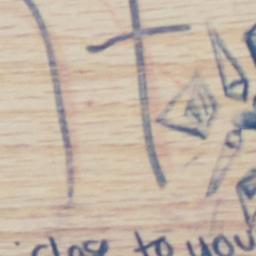 close to you